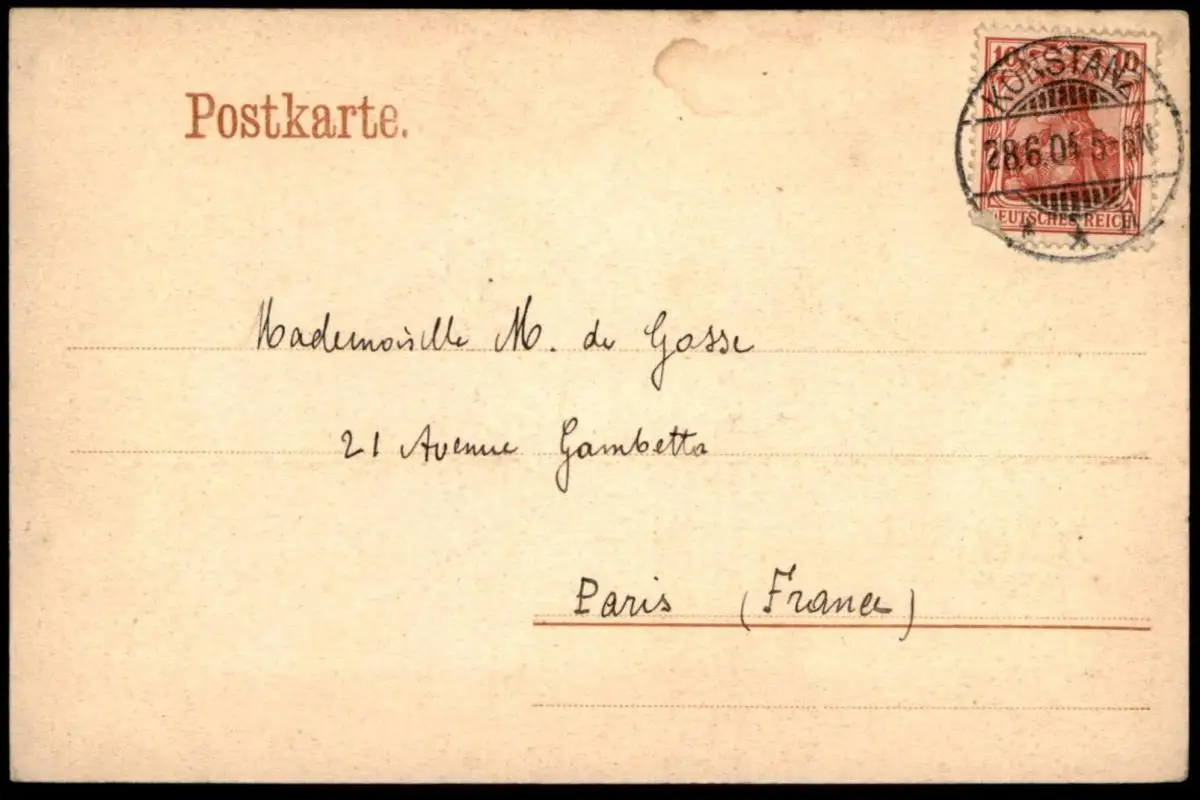 Postkarte.
10 10
KONSTANZ
28.6.04 5-6N
DEUTSCHES REICH
Mademoiselle M. de Gosse
21 Avenue Gambetta
Paris (France)